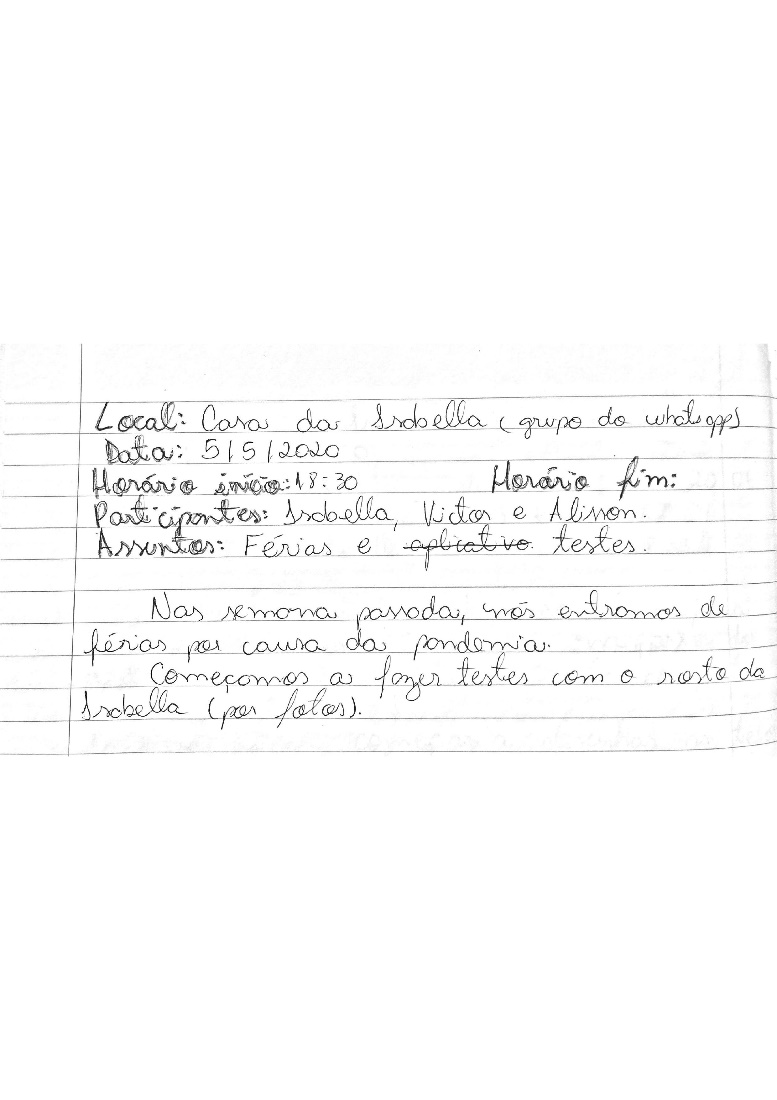 Local: Casa da Isabella (grupo do whatsapp)
Data: 5/5/2020
Horário início: 18:30 Horário fim:
Participantes: Isabella, Victor e Alisson.
Assuntos: Férias e aplicativo testes.
Nas semana passada, nós entramos de
férias por causa da pandemia.
Começamos a fazer testes com o rosto da
Isabella (por fotos).